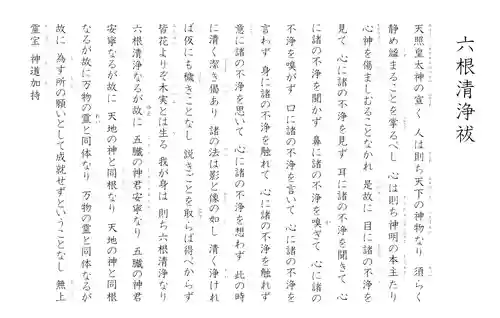 六根清浄祓
天照皇太神の宣く 人は則ち天下の神物なり 須らく
静め謐まることを掌るべし 心は則ち神明の本主たり
心神を傷ましむることなかれ 是故に 目に諸の不浄を
見て 心に諸の不浄を見ず 耳に諸の不浄を聞きて 心
に諸の不浄を聞かず 鼻に諸の不浄を嗅ぎて 心に諸の
不浄を嗅がず 口に諸の不浄を言いて 心に諸の不浄を
言わず 身に諸の不浄を触れて 心に諸の不浄を触れず
意に諸の不浄を思いて 心に諸の不浄を想わず 此の時
に清く潔き偈あり 諸の法は影と像の如し 清く浄けれ
ば仮にも穢きことなし 説きごとを取らば得べからず
皆花よりぞ木実とは生る 我が身は 則ち六根清浄なり
六根清浄なるが故に 五臓の神君安寧なり 五臓の神君
安寧なるが故に 天地の神と同根なり 天地の神と同根
なるが故に 万物の霊と同体なり 万物の霊と同体なるが
故に 為す所の願いとして成就せずということなし 無上
霊宝 神道加持